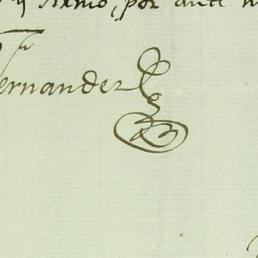 y firmó, por ante
ernandez